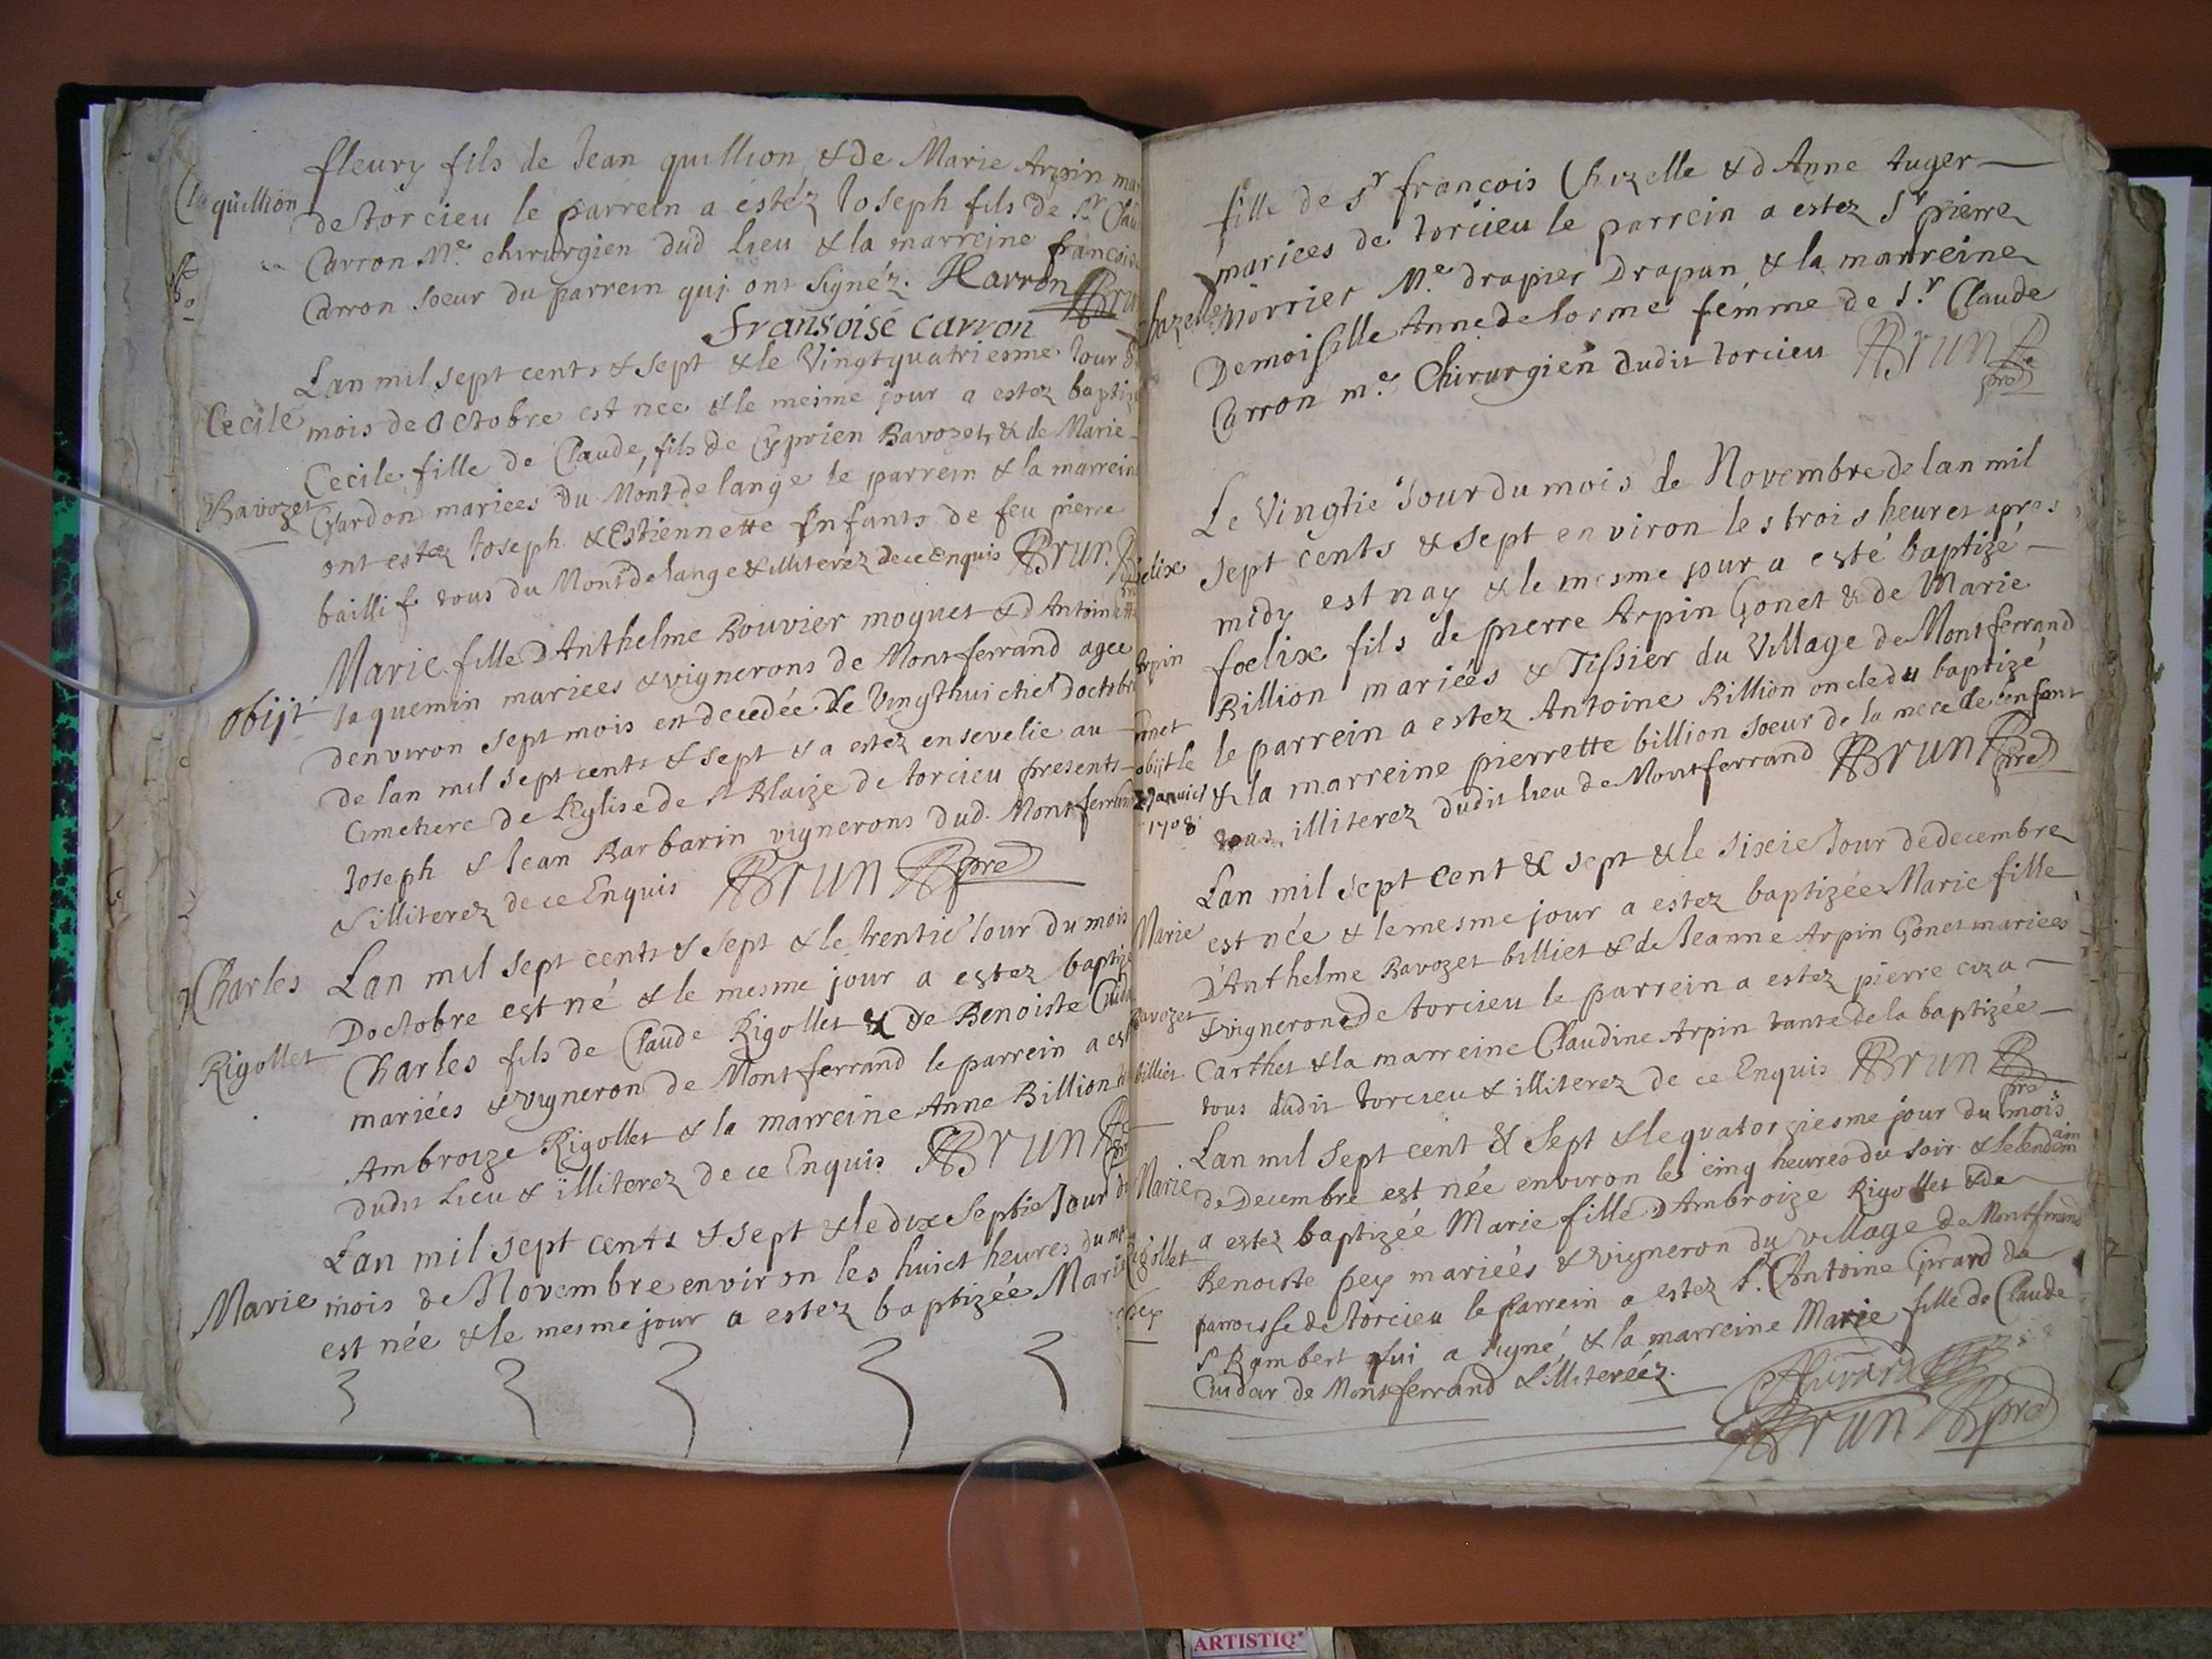 fleury fils de Jean quillion & de Marie Arpin
quillion
de torcieu le parrein a estéz Joseph fils de Sr
Carron Me chirurgien dud lieu & la marreine francoise
Carron soeur du parrein qui ont signéz. JCarron Brun
fransoise carron
Lan mil sept cents & sept & le Vingtquatriesme Jour
Cecile mois de Octobre est nee & le mesme jour a estez baptiz
Cecile fille de Claude, fils de Cyprien Ravozet, & de Marie
Ravozet Chardon mariees du Montdelange le parrein & la marrein
ont estez Joseph & Estiennette Enfants de feu pierre
baillif tous du Montdelange & illiterez de ce Enquis Brun
Marie fille D'Anthelme Bouvier moquet & D'Antoinette
Obijt Jaquemin mariees & vignerons de Montferrand agee
denviron sept mois est decedée le Vingthuictie doctobre
de lan mil sept cents & sept & a estez ensevelie au
Cimetiere de L'Eglise de St Blaize de torcieu presents
Joseph & Jean Barbarin vignerons dud. Montferrand
& illiterez de ce Enquis Brun pre
Charles Lan mil sept cents & sept & le trentie Jour du mois
Doctobre est né & le mesme jour a estez baptizé
Charles fils de Claude Rigollet & de Benoiste
Rigollet
mariées & vigneron de Montferrand le parrein a est
Ambroize Rigollet & la marreine Anne Billion
dudit Lieu & illiterez de ce Enquis Brun
Lan mil sept cents & sept & le dix septie Jour du
Marie mois de Novembre environ les huict heures du
est née & le mesme jour a estez baptizée Marie
fille de Sr francois Chazelle & d'Anne Auger
mariees de torcieu le parrein a estez Sr pierre
Chazelle morrier Me drapier Drapan & la marreine
Demoiselle Anne delorme femme de Sr Claude
Carron me Chirurgien dudit torcieu Brun pre
Le Vingtie Jour du mois de Novembre de lan mil
felix sept cents & sept environ les trois heures apres
midy est nay & le mesme jour a esté baptizé
foelix fils de pierre Arpin Gonet & de Marie
Arpin
Billion mariéés & Tissier du Village de Montferrand
gonet
le parrein a estez Antoine Billion oncle du baptizé
obijt le
& la marreine pierrette billion soeur de la mere de lenfant
Januier
1708
tous illiterez dudit lieu de Montferrand Brun pre
Lan mil sept cent & sept & le sixie Jour de decembre
Marie est née & le mesme jour a estez baptizée Marie fille
D'Anthelme Ravozet billiet & de Jeanne Arpin Gonet mariees
Ravozet & vignerons de torcieu le parrein a estez pierre
billiet Carthet & la marreine Claudine Arpin tante de la baptizée
tous dudit torcieu & illiterez de ce Enquis Brun pre
Lan mil sept cent & sept & le quatorziesme jour du mois
Marie de Decembre est née environ les cinq heures du soir & le lendemain
a estez baptizée Marie fille D'Ambroize Rigollet & de
Rigollet Benoiste pey mariéés & vigneron du village de Montferrand
parroisse de torcieu le parrein a estez Sr Antoine Girard de
St Rambert qui a signé, & la marreine Marie fille de Claude
Cuidar de Montferrand & illiteréez. AGirard
Brun pre
ARTISTIQ